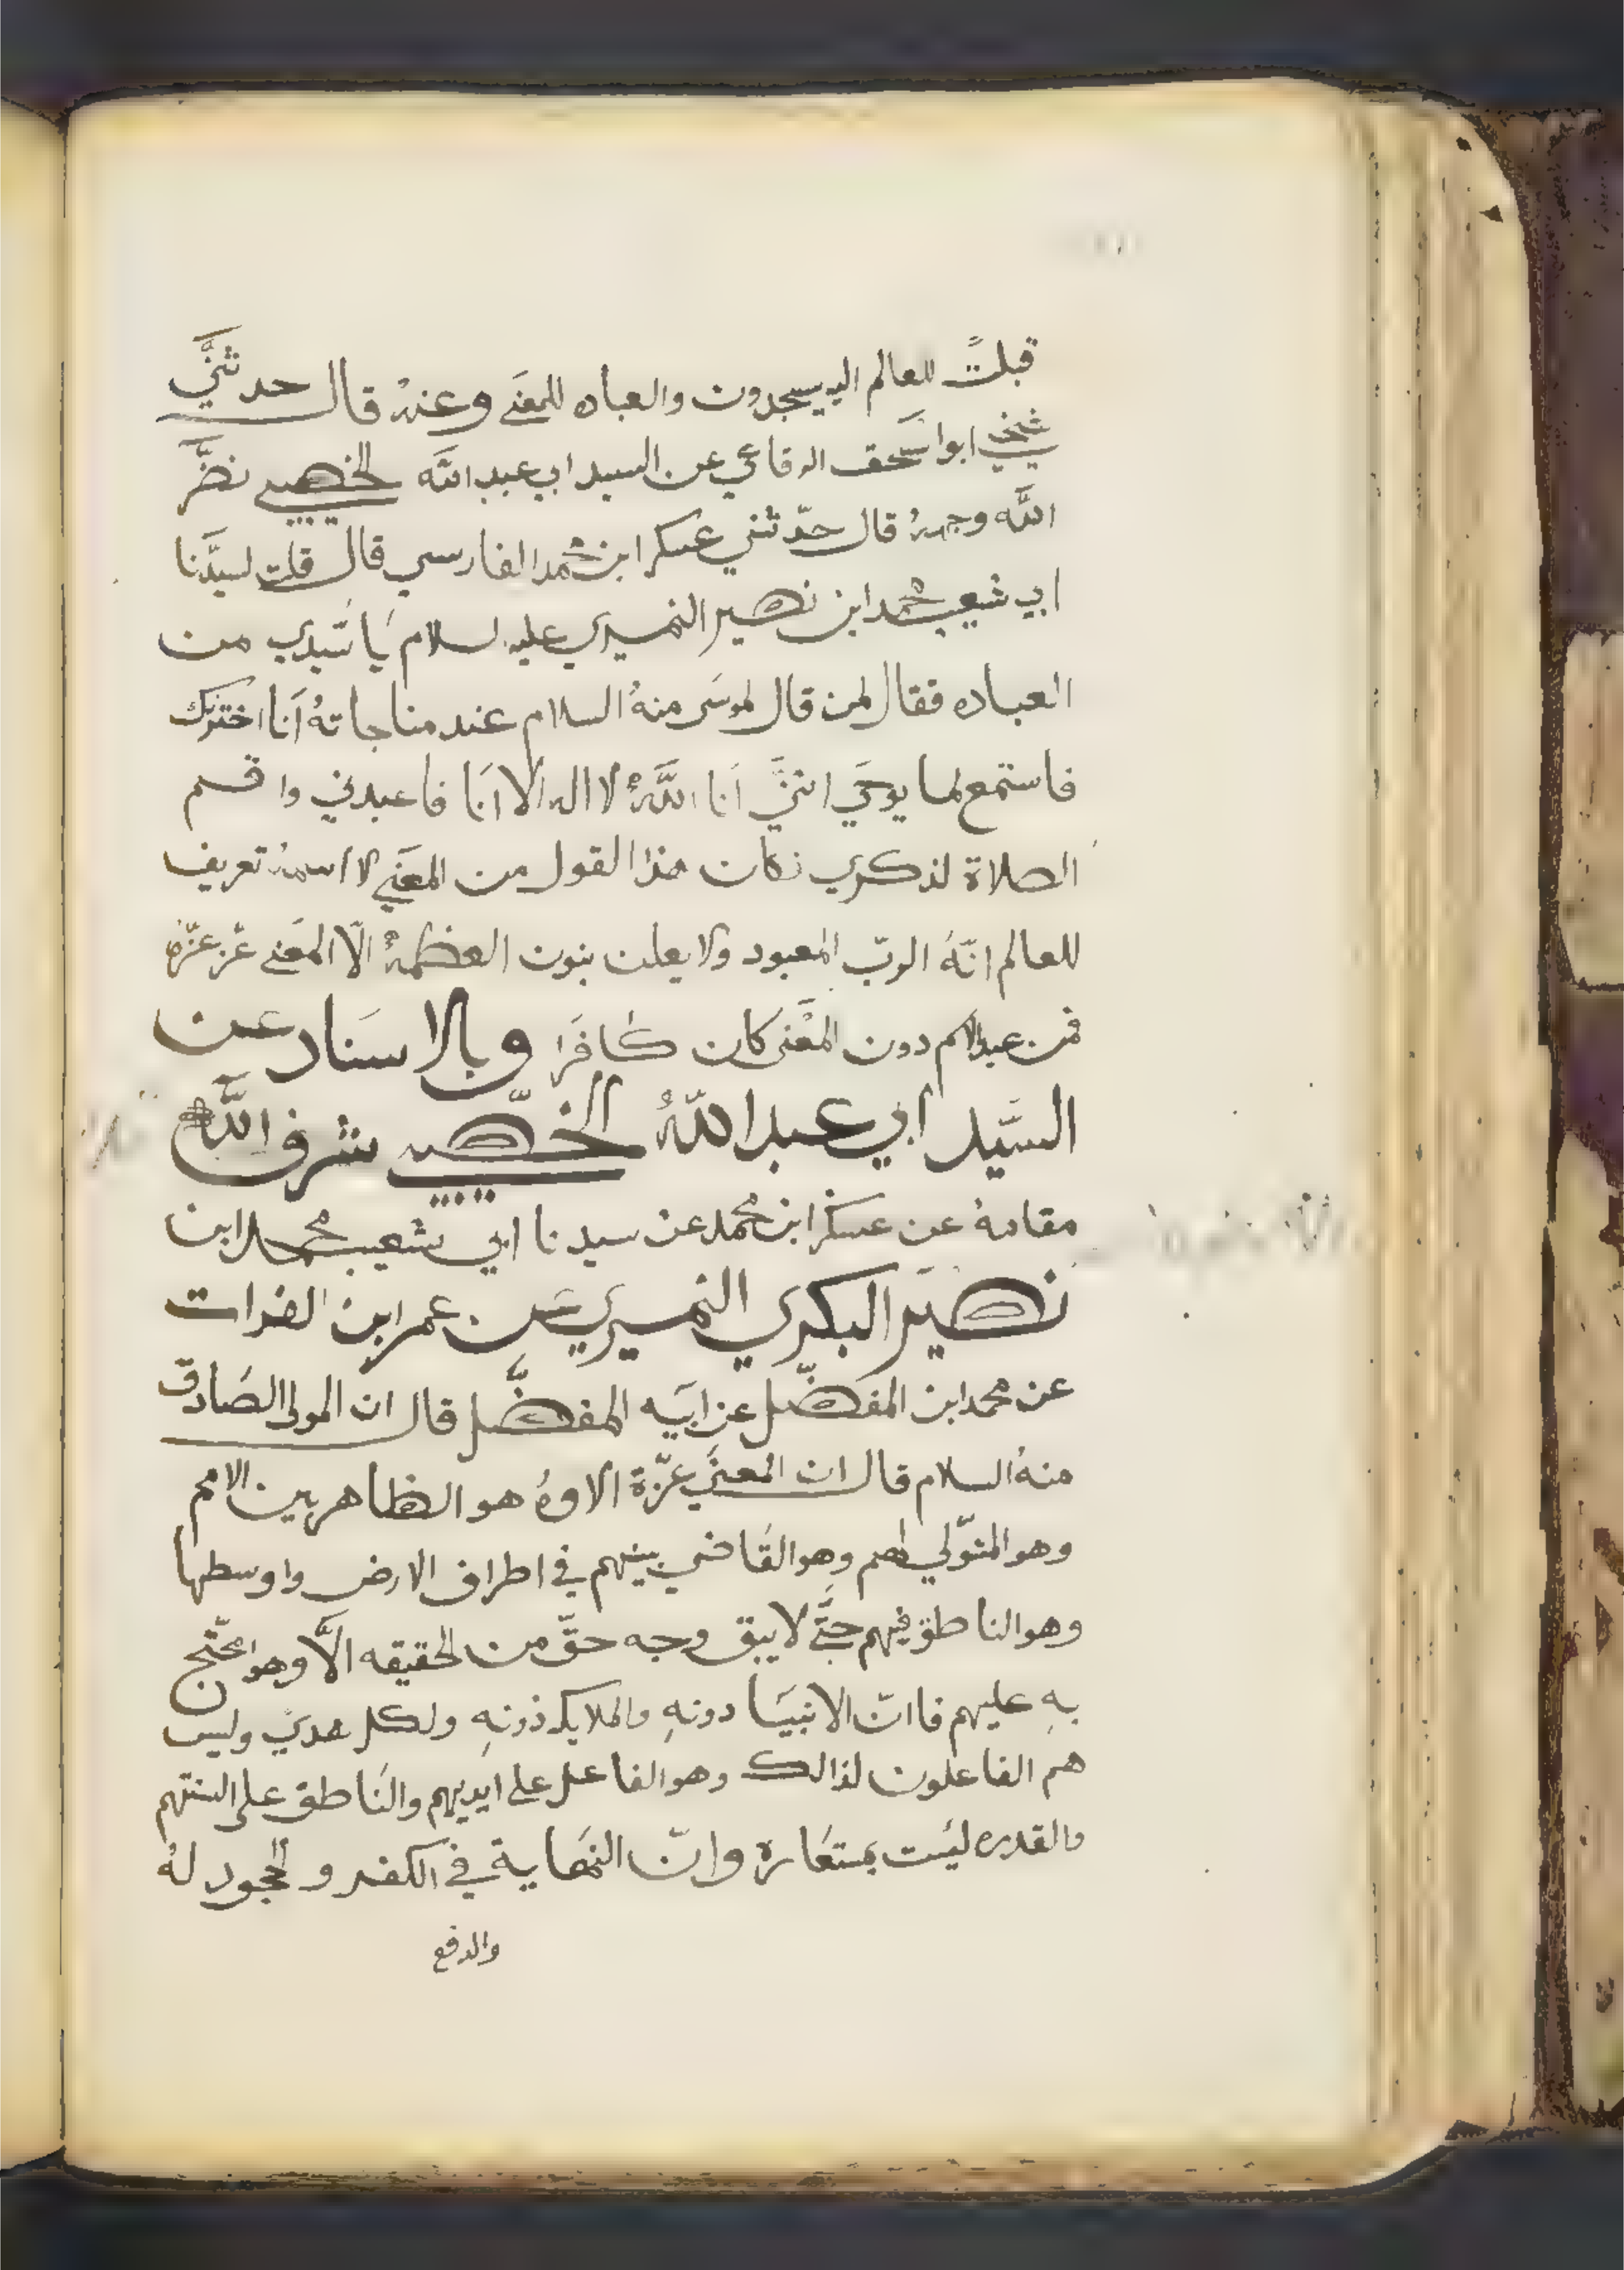 قبلتً للعالم اليه يسجدون والعباده للمعنَى وعنهُ قال حدثنيَّ
شيخي ابو اسَحق الرقاعي عن السيد ابي عبد اللَّه الخصيبي نضَّر
اللَّه وجههُ قال حدّثني عسكر ابن محمد الفارسي قال قلت لسيدَّنا
ابي شعيب محمد ابن نصير النميري عليه لسلام يَا سَيّدي من
العباده فقال لمن قال لموسَى منهُ السلام عند مناجاتهُ اَنا اختَرتك
فاستمع لما يوحَي انَّني اَنا اللَّهُ لا اله الا اَنا فاعبدني واقم
الصلاة لذكري فكان هذا القول من المعنَي لا اسمهُ تعريف
للعالم انّهُ الربّ المعبود ولا يعلن بنون العظمهُ الّا المعَنى عَز عزّه
فمن عبد الاسم دون المعَنى كان كافرَا وبالاسنَاد عن
السيّد ابي عبد اللّهُ الخصّيبي شرف اللَّه
مقامهُ عن عسكر ابن محمد عن سيدنا ابي شعيب محمد ابن
نصَير البكري النميري عَن عمر ابن الفرات
عن محمد ابن المفضّل عن ابيَه المفضَّل قال ان المولى الصَادق
منهُ السلام قال ان المعنَي عزّة الاوهُ هو الظاهر بين الامم
وهو المتوّلي لهم وهو القَاضي بينهم في اطراف الارض واوسطها
وهو الناطق فيهم حتََّي لا يبق وجه حقّ من الحقيقه الَّا وهو محتّج
بهِ عليهم فاانّ الانبيَا دونهِ والملايكه دونهِ ولكل هديً وليس
هم الفاعلون لذالك وهو الفاعل على ايديهم والنَاطق على السنتهم
والقدره ليَست بمستعَاره وانّ النهَاية في الكفر والجحود لهُ
والدفع